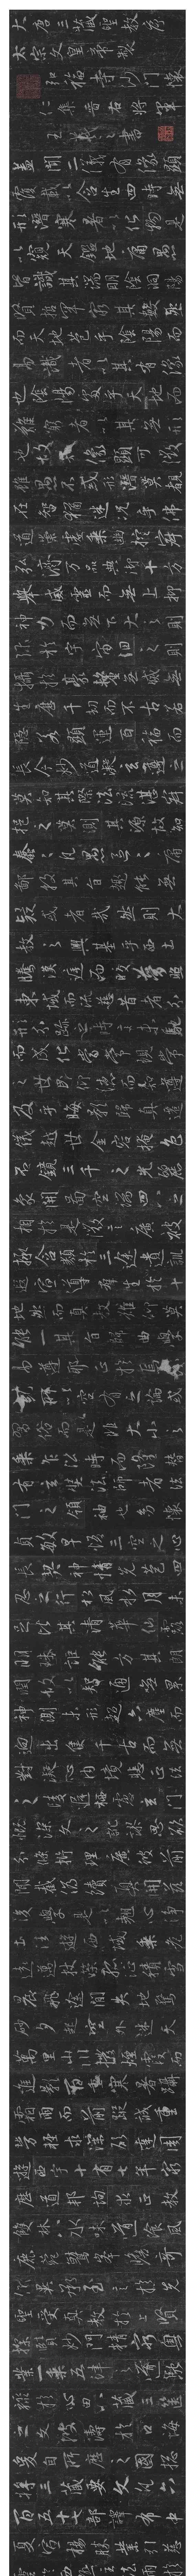 大唐三藏聖教序
太宗文皇帝製
弘福寺沙門懷
仁集晉右將軍
王羲之書
蓋聞二儀有像顯
覆載以含生四時無
形潛寒暑以化物是
以窺天鑑地庸愚
皆識其端明陰洞陽
賢哲罕窮其數然
而天地苞乎陰陽而
易識者以其有像
也陰陽處乎天地而
難窮者以其無形
也故知像顯可徵
雖愚不惑形潛莫覩
在智猶迷況乎佛
道崇虛乘幽控寂
弘濟萬品典御十方
舉威靈而無上抑
神力而無下大之則
彌於宇宙細之則
攝於毫釐無滅無
生歷千劫而不古若
隱若顯運百福而
長今妙道凝玄遵之
莫知其際法流湛寂
挹之莫測其源故知
蠢蠢凡愚區區庸
鄙投其旨趣能無
疑惑者哉然則大
教之興基乎西土
騰漢庭而皎夢照
東域而流慈昔者分
形分跡之時言未馳
而成化當常現常
之世民仰德而知遵
及乎晦影歸真遷
儀越世金容掩色
不鏡三千之光麗
象開圖空端四八之
相於是微言廣被
拯含類於三途遺訓
遐宣導群生於十
地然而真教難仰莫
能一其旨歸曲學
易遵邪正於焉
紛糺所以空有之論或
習俗而是非大小之
乘乍沿時而隆替
有玄奘法師者法
門之領袖也幼懷
貞敏早悟三空之心
長契神情先苞四
忍之行松風水月未
足比其清華仙露
明珠詎能方其朗
潤故以智通無累
神測未形超六塵而
迥出隻千古而無
對凝心內境悲正法
之陵遲栖慮玄門
慨深文之訛謬思欲
分條析理廣彼前
聞截偽續真開茲
後學是以翹心淨
土往遊西域乘危
遠邁杖策孤征積雪
晨飛途間失地驚
砂夕起空外迷天
萬里山川撥煙霞而
進影百重寒暑躡
霜雨而前蹤誠重
勞輕求深願達周
遊西宇十有七年窮
歷道邦詢求正教
雙林八水味道飡風
鹿菀鷲峯瞻奇
仰異承至言於先
聖受真教於上賢
探賾妙門精窮奧
業一乘五律之道馳
驟於心田八藏三篋
之文波濤於口海
爰自所歷之國總
將三藏要文凡六
百五十七部譯布中
夏宣揚勝業引慈